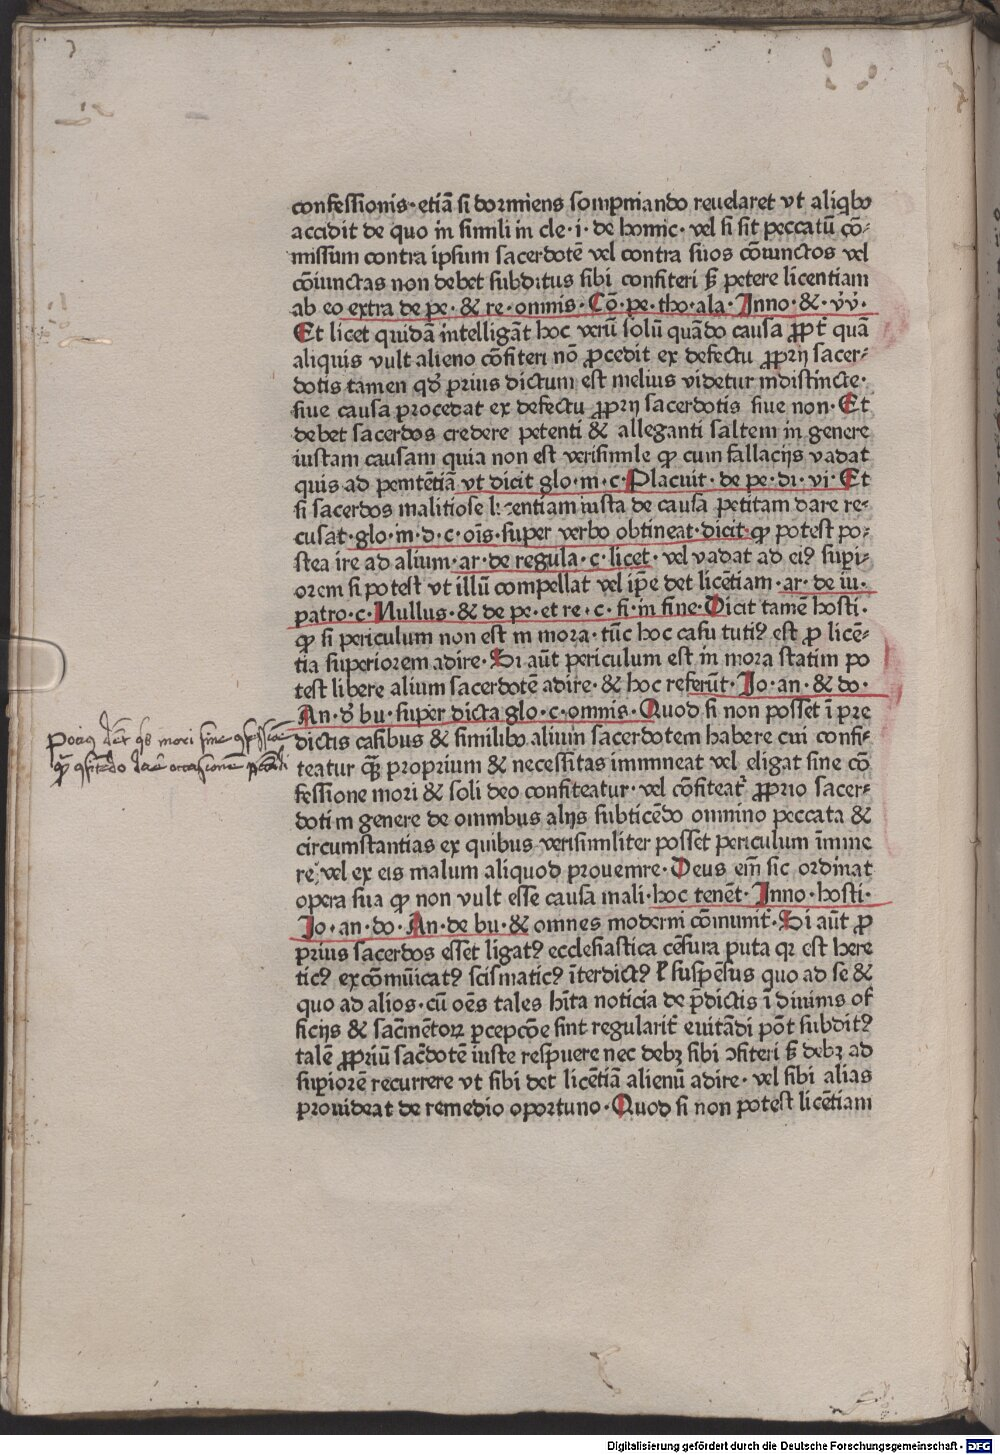 confessionis· etiā si dormiens sompniando reuelaret vt aliqbo
accidit de quo in simili in cle· i· de homic· vel si sit peccatū cō⸗
missum contra ipsum sacerdotē vel contra suos cōiunctos vel
cōiunctas non debet subditus sibi confiteri sꝫ petere licentiam
ab eo extra de pe· & re· omnis· Cō· pe· tho· ala· Inno· & ·
Et licet quidā intelligāt hoc verū solū quādo causa ꝓpt̄ quā
aliquis vult alieno cōfiteri nō ꝓcedit ex defectu ꝓprij sacer⸗
dotis tamen qđ prius dictum est melius videtur indistincte·
siue causa procedat ex defectu ꝓprij sacerdotis siue non· Et
debet sacerdos credere petenti & alleganti saltem in genere
iustam causam quia non est verisimile ꝙ cum fallacijs vadat
quis ad penitētiā vt dicit glo· in· c· Placuit· de pe· di· vi· Et
si sacerdos malitiose licentiam iusta de causa petitam dare re⸗
cusat· glo· in· d· c· oīs· super verbo obtineat· dicit· ꝙ potest po⸗
stea ire ad alium· ar· de regula· c· licet· vel vadat ad eiꝰ supi⸗
orem si potest vt illū compellat vel ip̄e det licētiam· ar· de iu·
patro· c· Nullus· & de pe· et re· c· si· in fine· Dicit tamē hosti·
ꝙ si periculum non est in mora· tūc hoc casu tutiꝰ est ꝓ licē⸗
tia superiorem adire· Si aūt periculum est in mora statim po
test libere alium sacerdotē adire· & hoc referūt· Io· an· & do·
An· đ bu· super dicta glo· c· omnis· Quod si non posset ī pre
dictis casibus & similibo alium sacerdotem habere cui confi⸗
teatur qꝫ proprium & necessitas immineat vel eligat sine cō
fessione mori & soli deo confiteatur· vel cōfiteat̄ ꝓprio sacer⸗
doti in genere de omnibus alijs subticēdo omnino peccata &
circumstantias ex quibus verisimiliter posset periculum īmine
re· vel ex eis malum aliquod prouenire· Deus eni̅ sic ordinat
opera sua ꝙ non vult esse causa mali· hoc tenēt· Inno· hosti·
Io· an· do· An· de bu· & omnes moderni cōmunit̄· Si aūt ꝓ
prius sacerdos esset ligatꝰ ecclesiastica cēsura puta qr est here
ticꝰ excōmūicatꝰ scismaticꝰ īterdictꝰ ł suspēsus quo ad se &
quo ad alios· cū oēs tales hīta noticia de p̄dictis ī diuinis of
ficijs & sacmētoꝝ ꝑcepcōe sint regularit̄ euitādi pōt subditꝰ
talē ꝓpriū sac̄dotē iuste respuere nec debꝫ sibi ↄfiteri sꝫ debꝫ ad
supiorē recurrere vt sibi det licētiā alienū adire· vel sibi alias
prouideat de remedio oportuno· Quod si non potest licētiam
Pociꝰ mori sine ꝯfessione
ꝙ ꝯfitēdo dare occasionē peccādi
Digitalisierung gefördert durch die Deutsche Forschungsgemeinschaft - DFG